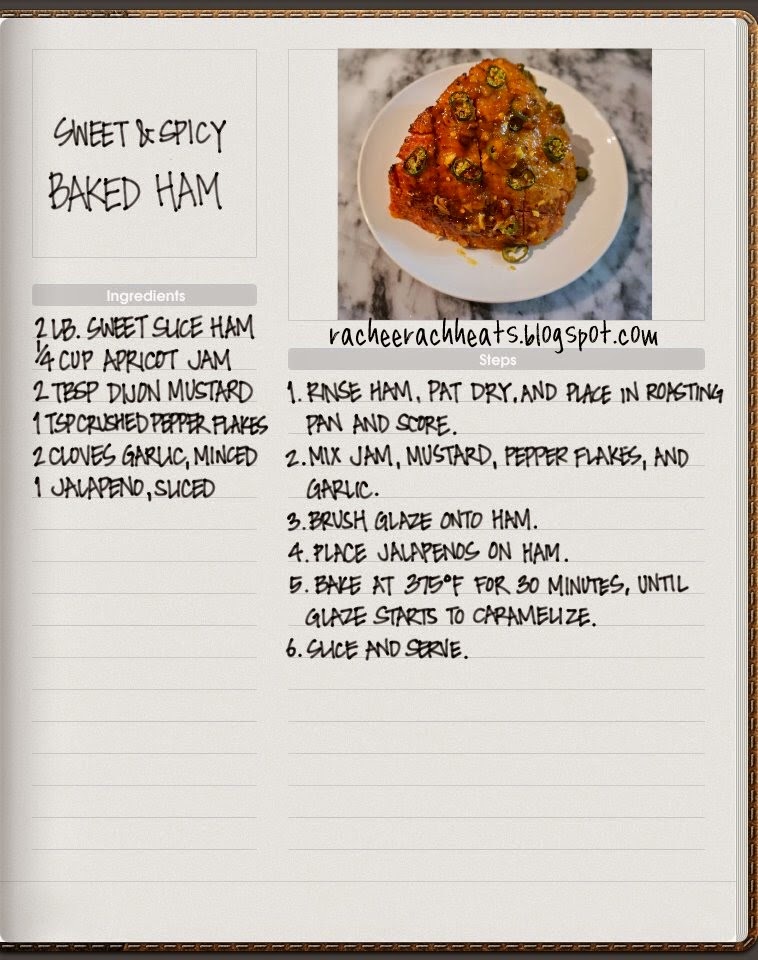 SWEET & SPICY
BAKED HAM
Ingredients
2 LB. SWEET SLICE HAM
1/4 CUP APRICOT JAM
2 TBSP DIJON MUSTARD
1 TSP CRUSHED PEPPER FLAKES
2 CLOVES GARLIC, MINCED
1 JALAPENO, SLICED
racheerachheats.blogspot.com
Steps
1. RINSE HAM, PAT DRY, AND PLACE IN ROASTING
PAN AND SCORE.
2. MIX JAM, MUSTARD, PEPPER FLAKES, AND
GARLIC.
3. BRUSH GLAZE ONTO HAM.
4. PLACE JALAPENOS ON HAM.
5. BAKE AT 375°F FOR 30 MINUTES, UNTIL
GLAZE STARTS TO CARAMELIZE.
6. SLICE AND SERVE.